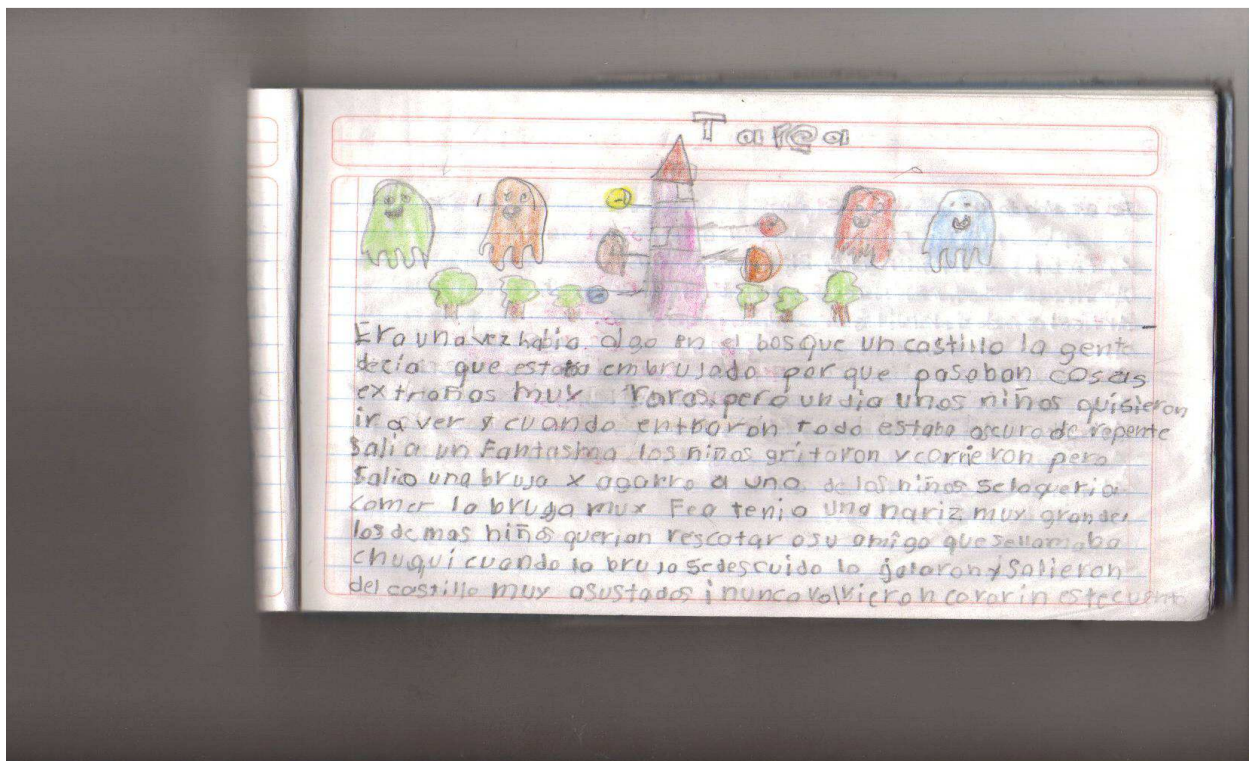 Tarea
Era una vez habia algo en el bosque un castillo la gente
decia que estaba embrujado por que pasaban cosas
extrañas muy raras, pero un dia unos niños quisieron
ir a ver y cuando entraron todo estaba oscuro de repente
Salio un Fantasma los niños gritaron y corrieron pero
Salio una bruja y agarro a uno de los niños se lo queria
comer la bruja mux Fea tenia una nariz muy grande,
los demas niños querian rescatar a su amigo que se llamaba
chuqui cuando la bruja se descuido lo jalaron y Salieron
del castillo muy asustados i nunca volvieron cororin este cuento